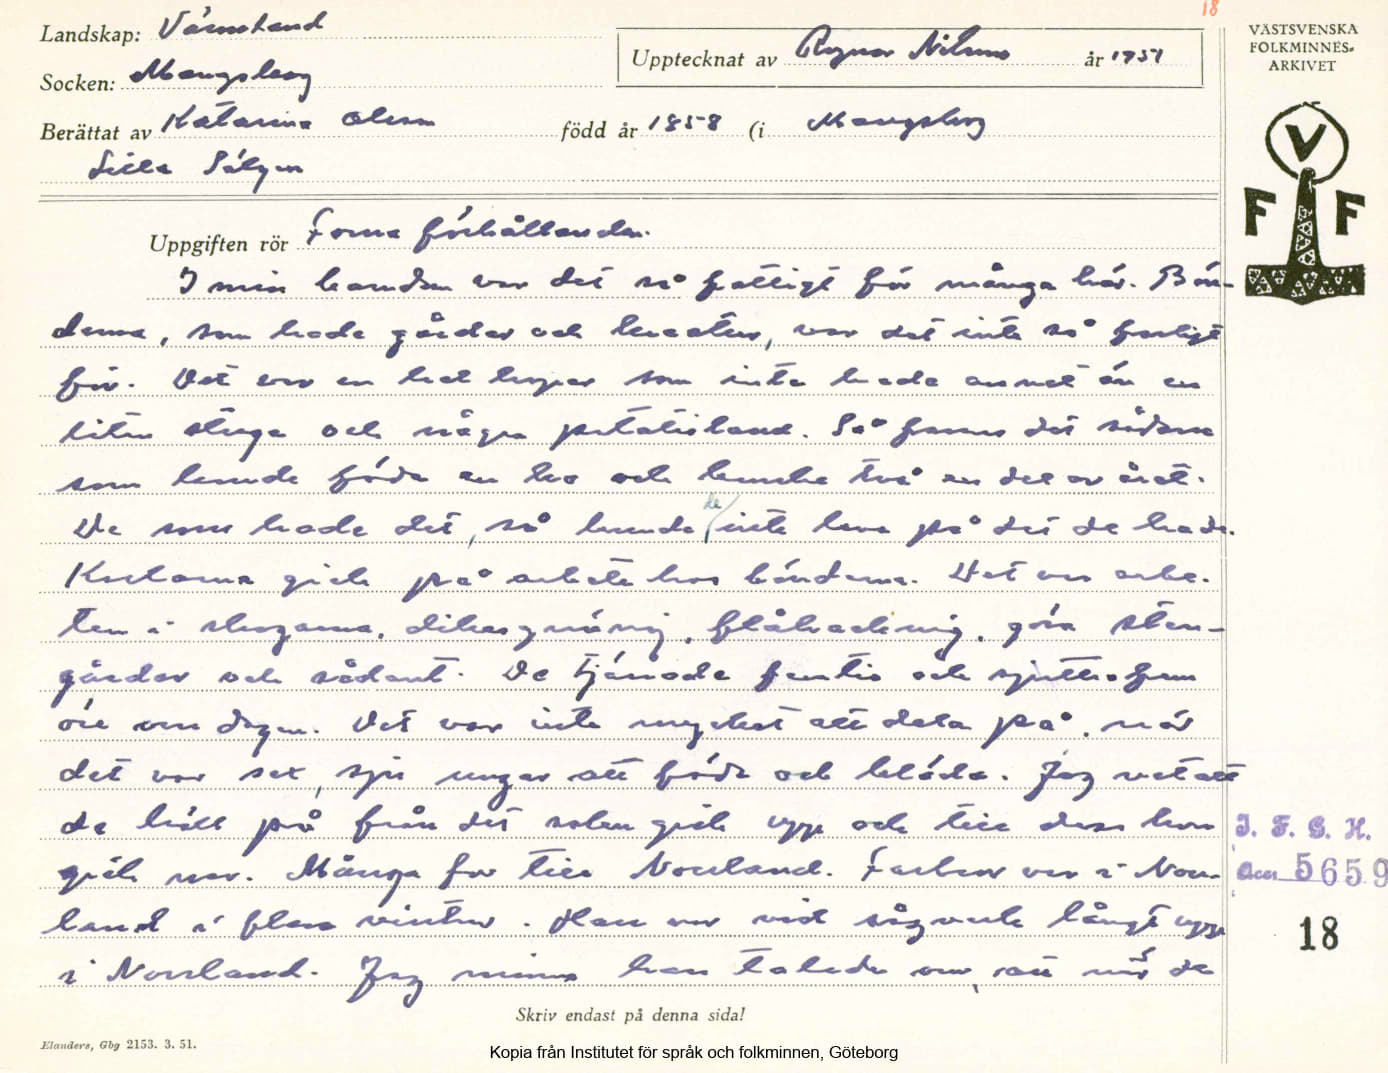 18
Landskap: Värmland
Upptecknat av Ragnar Nilsson år 1951
Socken: Mangskog
Berättat av Katarina Olsson född år 1858 (i Mangskog
Lilla Sälgen
VÄSTSVENSKA
FOLKMINNES-
ARKIVET
V
F F
Uppgiften rör Forna förhållanden.
I min barndom var det så fattigt för många här. Bön-
derna, som hade gårdar och kreatur, var det inte så farligt
för. Det var en hel hoper som inte hade annat än en
liten stuga och några potatisland. Så fanns det sådana
som kunde föda en ko och kanske två en del av året.
De som hade det, så kunde de inte leva på det de hade.
Karlarna gick på arbete hos bönderna. Det var arbe-
ten i skogarna, dikesgrävning, flåhackning, göra sten-
gårdar och sådant. De tjänade femtio och sjuttiofem
öre om dagen. Det var inte mycket att dela på, när
det var sex, sju ungar att föda och kläda. Jag vet att
de höll på från det solen gick upp och till dess hon
gick ner. Många for till Norrland. Farbror var i Norr-
land i flera vintrar. Han var vid sågverk långt uppe
i Norrland. Jag minns han talade om, att när de
I. F. G. H.
Acc. 5659
18
Skriv endast på denna sida!
Elanders, Gbg 2153. 3. 51.
Kopia från Institutet för språk och folkminnen, Göteborg